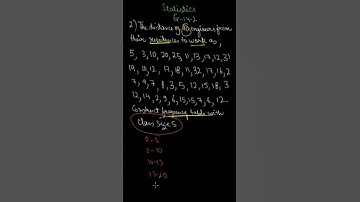 Statistics
Ex-14.2
2) The distance of 40 engineers from
their residence to work as,
5, 3, 10, 20, 25, 11, 13, 17, 12, 31
19, 10, 12, 17, 18, 11, 32, 17, 16, 2
7, 9, 7, 8, 3, 5, 12, 15, 18, 3
12, 14, 2, 9, 6, 15, 15, 7, 6, 12..
Construct frequency table with
Class Size 5
0-5
5-10
10-15
15-20